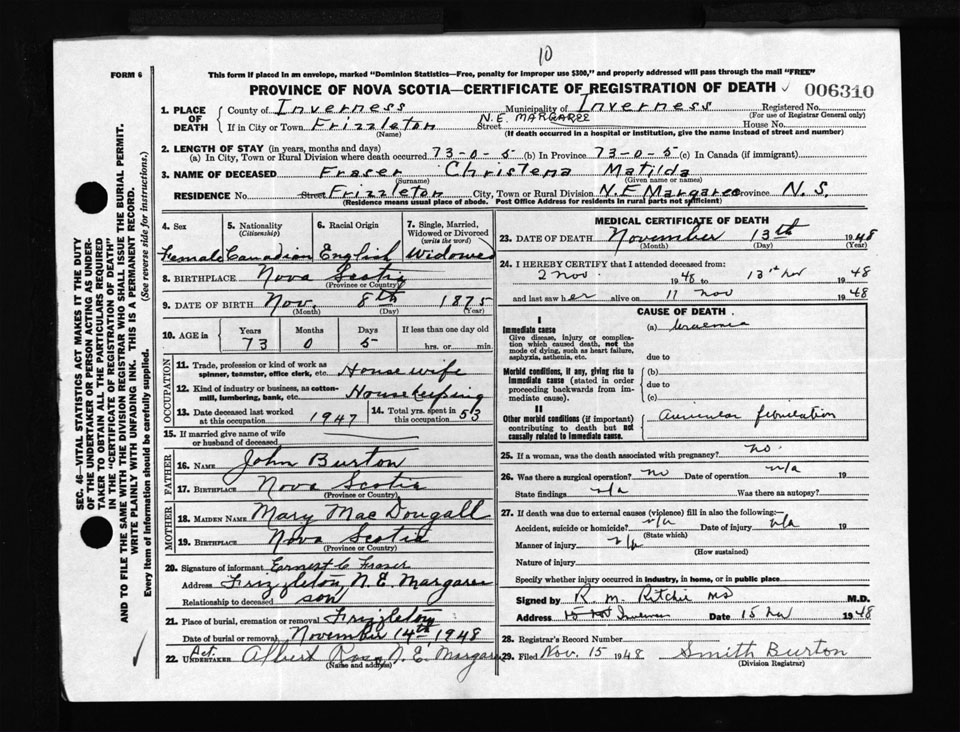 10
FORM 6
This form if placed in an envelope, marked "Dominion Statistics—Free, penalty for improper use $300," and properly addressed will pass through the mail "FREE"
PROVINCE OF NOVA SCOTIA—CERTIFICATE OF REGISTRATION OF DEATH 006310
1. PLACE OF DEATH
County of Inverness Municipality of Inverness Registered No.
(For use of Registrar General only)
If in City or Town Frizzleton Street N.E. MARGAREE House No.
(Name) (If death occurred in a hospital or institution, give the name instead of street and number)
2. LENGTH OF STAY (in years, months and days)
(a) In City, Town or Rural Division where death occurred 73-0-5 (b) In Province 73-0-5 (c) In Canada (if immigrant)
3. NAME OF DECEASED Fraser Christena Matilda
(Surname) (Given name or names)
RESIDENCE No. Street Frizzleton City, Town or Rural Division N.E Margaree Province N.S.
(Residence means usual place of abode. Post Office Address for residents in rural parts not sufficient)
4. Sex Female
5. Nationality (Citizenship) Canadian
6. Racial Origin English
7. Single, Married, Widowed or Divorced (write the word) Widowed
8. BIRTHPLACE Nova Scotia
(Province or Country)
9. DATE OF BIRTH Nov. 8th 1875
(Month) (Day) (Year)
10. AGE in Years Months Days If less than one day old
73 0 5 hrs. or min.
OCCUPATION
11. Trade, profession or kind of work as spinner, teamster, office clerk, etc. Housewife
12. Kind of industry or business, as cotton-mill, lumbering, bank, etc. Housekeeping
13. Date deceased last worked at this occupation 1947
14. Total yrs. spent in this occupation 53
15. If married give name of wife or husband of deceased
FATHER
16. NAME John Burton
17. BIRTHPLACE Nova Scotia
(Province or Country)
MOTHER
18. MAIDEN NAME Mary MacDougall
19. BIRTHPLACE Nova Scotia
(Province or Country)
20. Signature of informant Earnest C Fraser
Address Frizzleton, N.E. Margaree
Relationship to deceased son
21. Place of burial, cremation or removal Frizzleton
Date of burial or removal November 14th, 1948
22. Act. UNDERTAKER Albert Ross, N.E. Margaree
(Name and address)
MEDICAL CERTIFICATE OF DEATH
23. DATE OF DEATH November 13th 1948
(Month) (Day) (Year)
24. I HEREBY CERTIFY that I attended deceased from:
2 nov. 1948 to 13th Nov 1948
and last saw her alive on 11 nov 1948
CAUSE OF DEATH
I
Immediate cause (a) Uraemia
Give disease, injury or complication which caused death, not the mode of dying, such as heart failure, asphyxia, asthenia, etc.
due to
Morbid conditions, if any, giving rise to immediate cause (stated in order proceeding backwards from immediate cause).
(b)
due to
(c)
II
Other morbid conditions (if important) contributing to death but not causally related to immediate cause.
auricular fibrillation
25. If a woman, was the death associated with pregnancy? no.
26. Was there a surgical operation? no Date of operation n/a 19
State findings n/a Was there an autopsy?
27. If death was due to external causes (violence) fill in also the following:—
Accident, suicide or homicide? n/a Date of injury n/a 19
(State which)
Manner of injury n/a
(How sustained)
Nature of injury
Specify whether injury occurred in industry, in home, or in public place
Signed by R. M. Ritchie MD M.D.
Address Date 15 Nov 1948
28. Registrar's Record Number
29. Filed Nov. 15 1948 Smith Burton
(Division Registrar)
SEC. 46—VITAL STATISTICS ACT MAKES IT THE DUTY
OF THE UNDERTAKER OR PERSON ACTING AS UNDERTAKER TO OBTAIN ALL THE PARTICULARS REQUIRED
IN THE "CERTIFICATE OF REGISTRATION OF DEATH"
AND TO FILE THE SAME WITH THE DIVISION REGISTRAR WHO SHALL ISSUE THE BURIAL PERMIT.
WRITE PLAINLY WITH UNFADING INK. THIS IS A PERMANENT RECORD.
Every item of information should be carefully supplied. (See reverse side for instructions.)